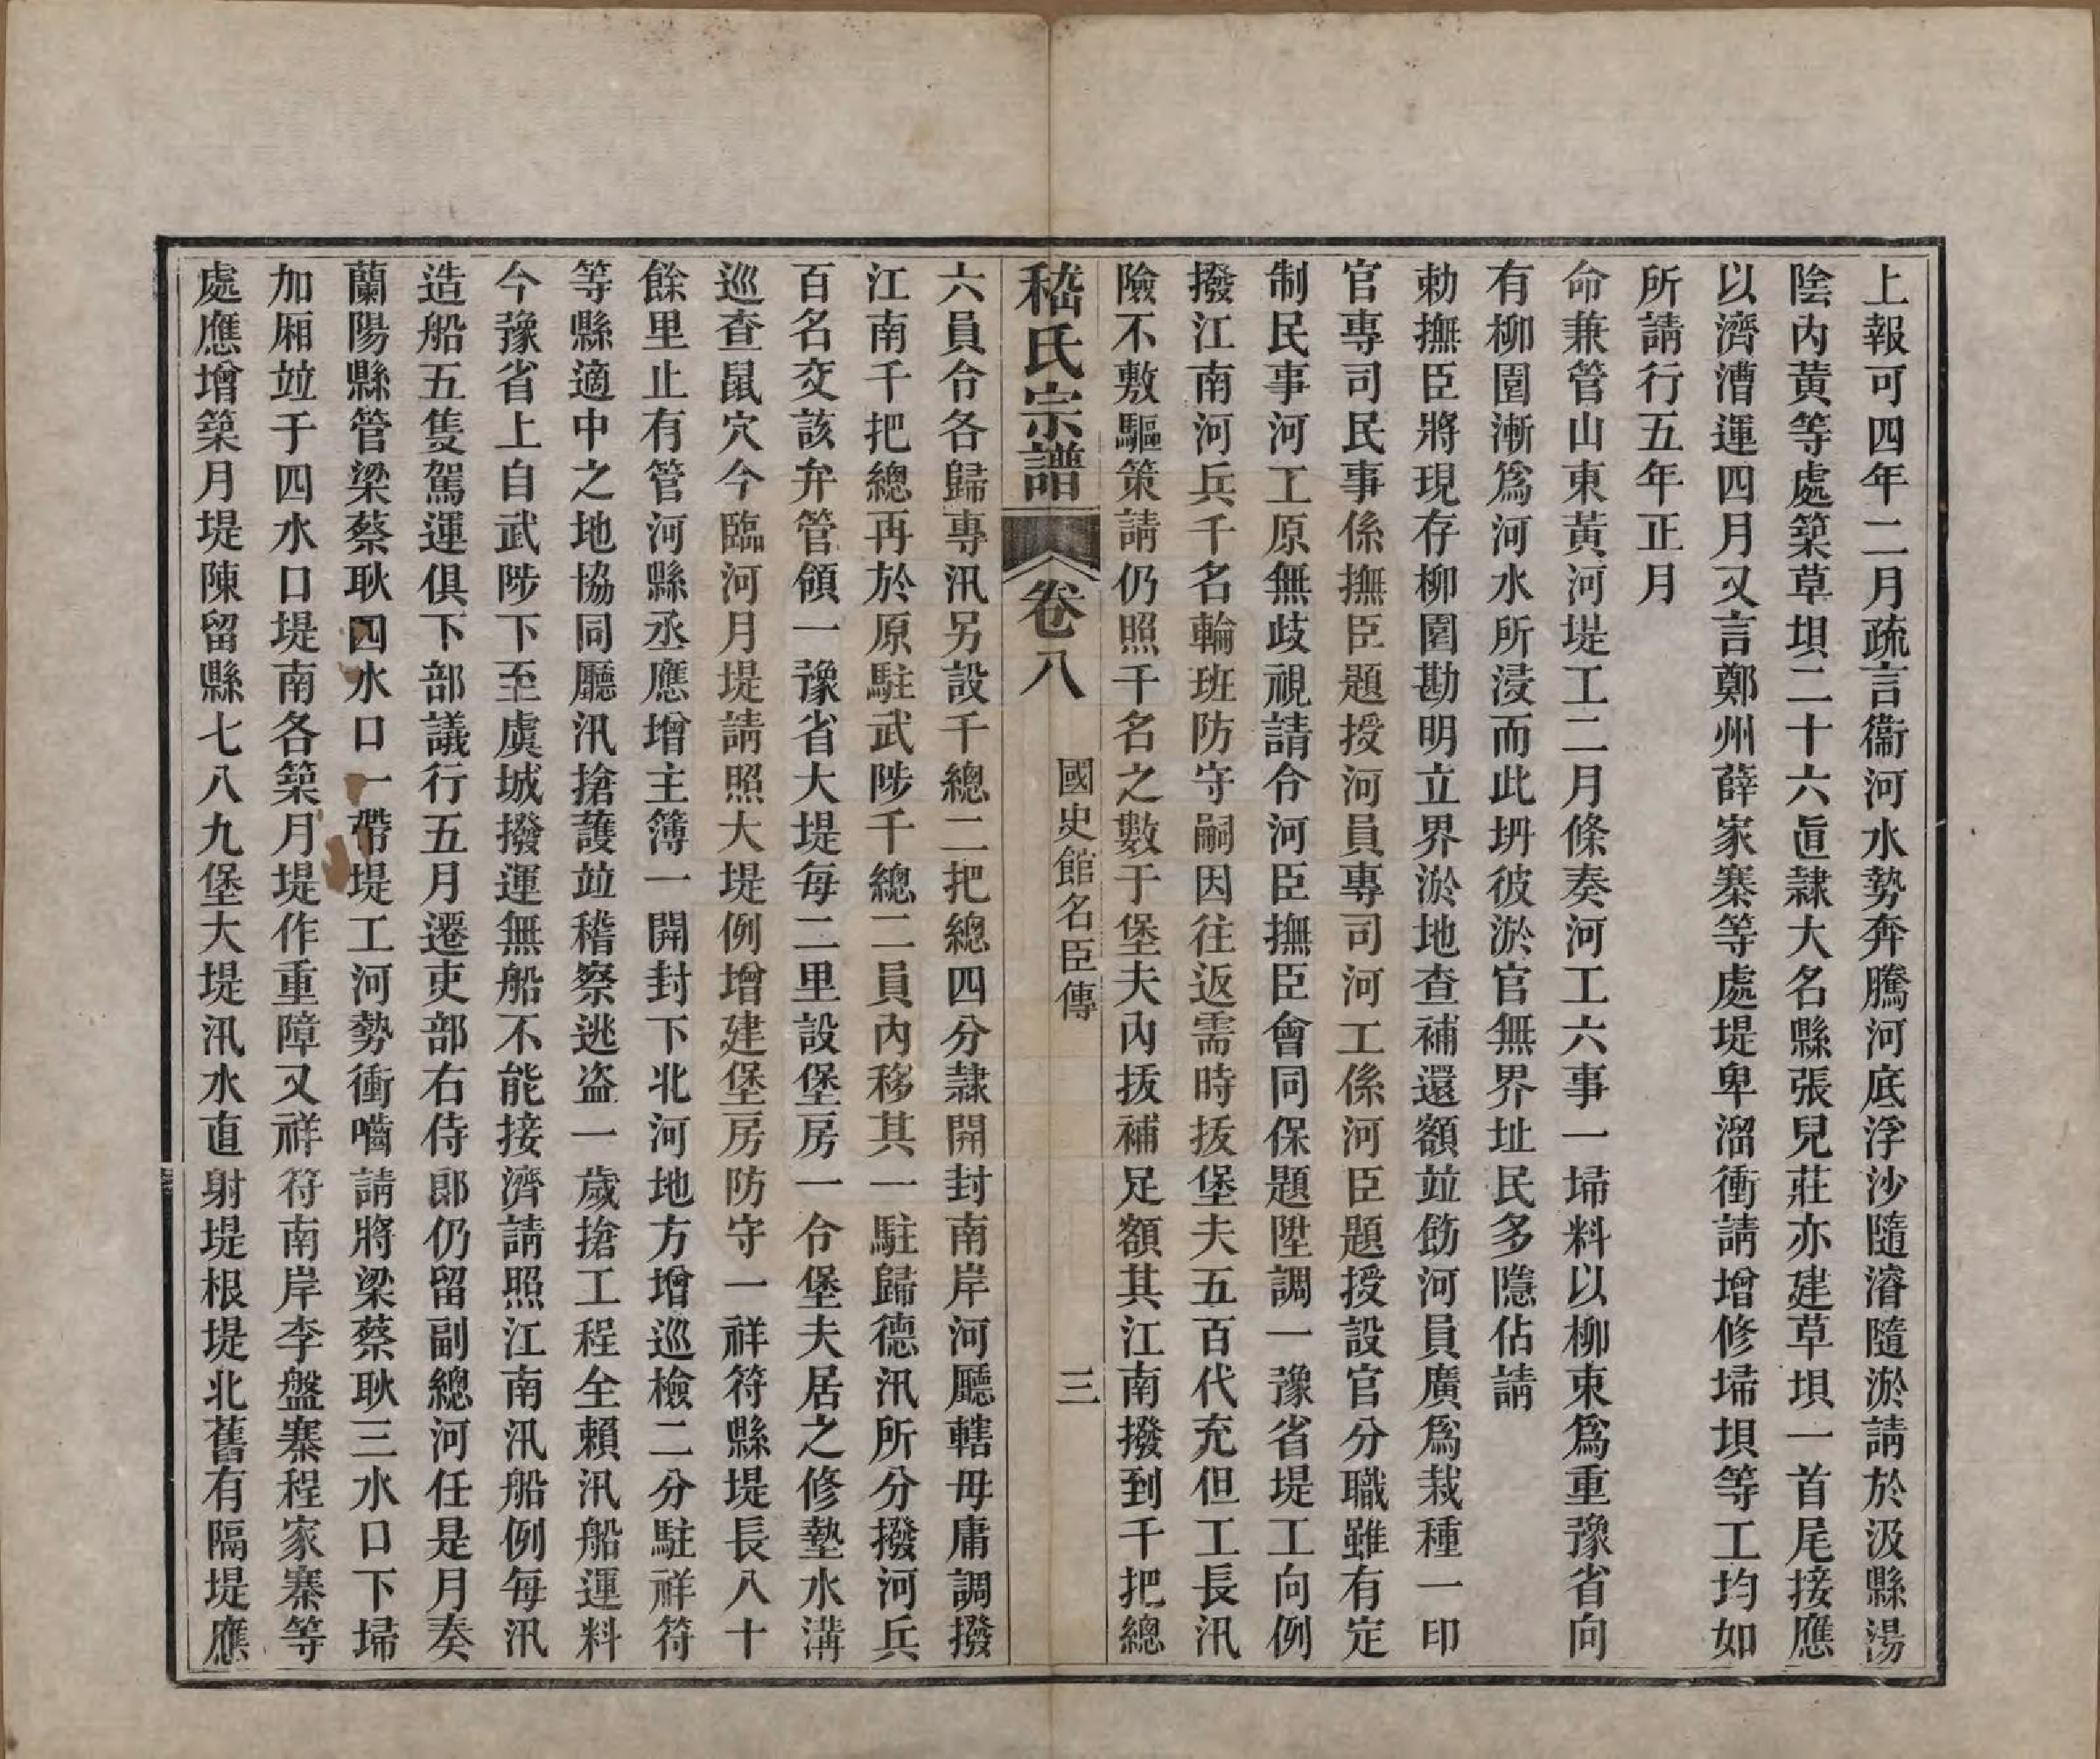 上報可四年二月疏言衞河水勢奔騰河底浮沙隨濬隨淤請於汲縣湯
陰內黃等處築草垻二十六直隸大名縣張兒莊亦建草垻一首尾接應
以濟漕運四月又言鄭州薛家寨等處堤卑溜衝請增修埽垻等工均如
所請行五年正月
命兼管山東黃河堤工二月條奏河工六事一埽料以柳束爲重豫省向
有柳園漸爲河水所浸而此坍彼淤官無界址民多隱佔請
勅撫臣將現存柳園勘明立界淤地查補還額並飭河員廣爲栽種一印
官專司民事係撫臣題授河員專司河工係河臣題授設官分職雖有定
制民事河工原無歧視請令河臣撫臣會同保題陞調一豫省堤工向例
撥江南河兵千名輪班防守嗣因往返需時拔堡夫五百代充但工長汛
險不敷驅策請仍照千名之數于堡夫內拔補足額其江南撥到千把總
嵇氏宗譜　卷八　國史館名臣傳　三
六員令各歸專汛另設千總二把總四分隸開封南岸河廳轄毋庸調撥
江南千把總再於原駐武陟千總二員內移其一駐歸德汛所分撥河兵
百名交該弁管領一豫省大堤每二里設堡房一令堡夫居之修墊水溝
巡查鼠穴今臨河月堤請照大堤例增建堡房防守一祥符縣堤長八十
餘里止有管河縣丞應增主簿一開封下北河地方增巡檢二分駐祥符
等縣適中之地協同廳汛搶護並稽察逃盜一歲搶工程全賴汛船運料
今豫省上自武陟下至虞城撥運無船不能接濟請照江南汛船例每汛
造船五隻駕運俱下部議行五月遷吏部右侍郎仍留副總河任是月奏
蘭陽縣管梁蔡耿四水口一帶堤工河勢衝嚙請將梁蔡耿三水口下埽
加厢並于四水口堤南各築月堤作重障又祥符南岸李盤寨程家寨等
處應增築月堤陳留縣七八九堡大堤汛水直射堤根堤北舊有隔堤應